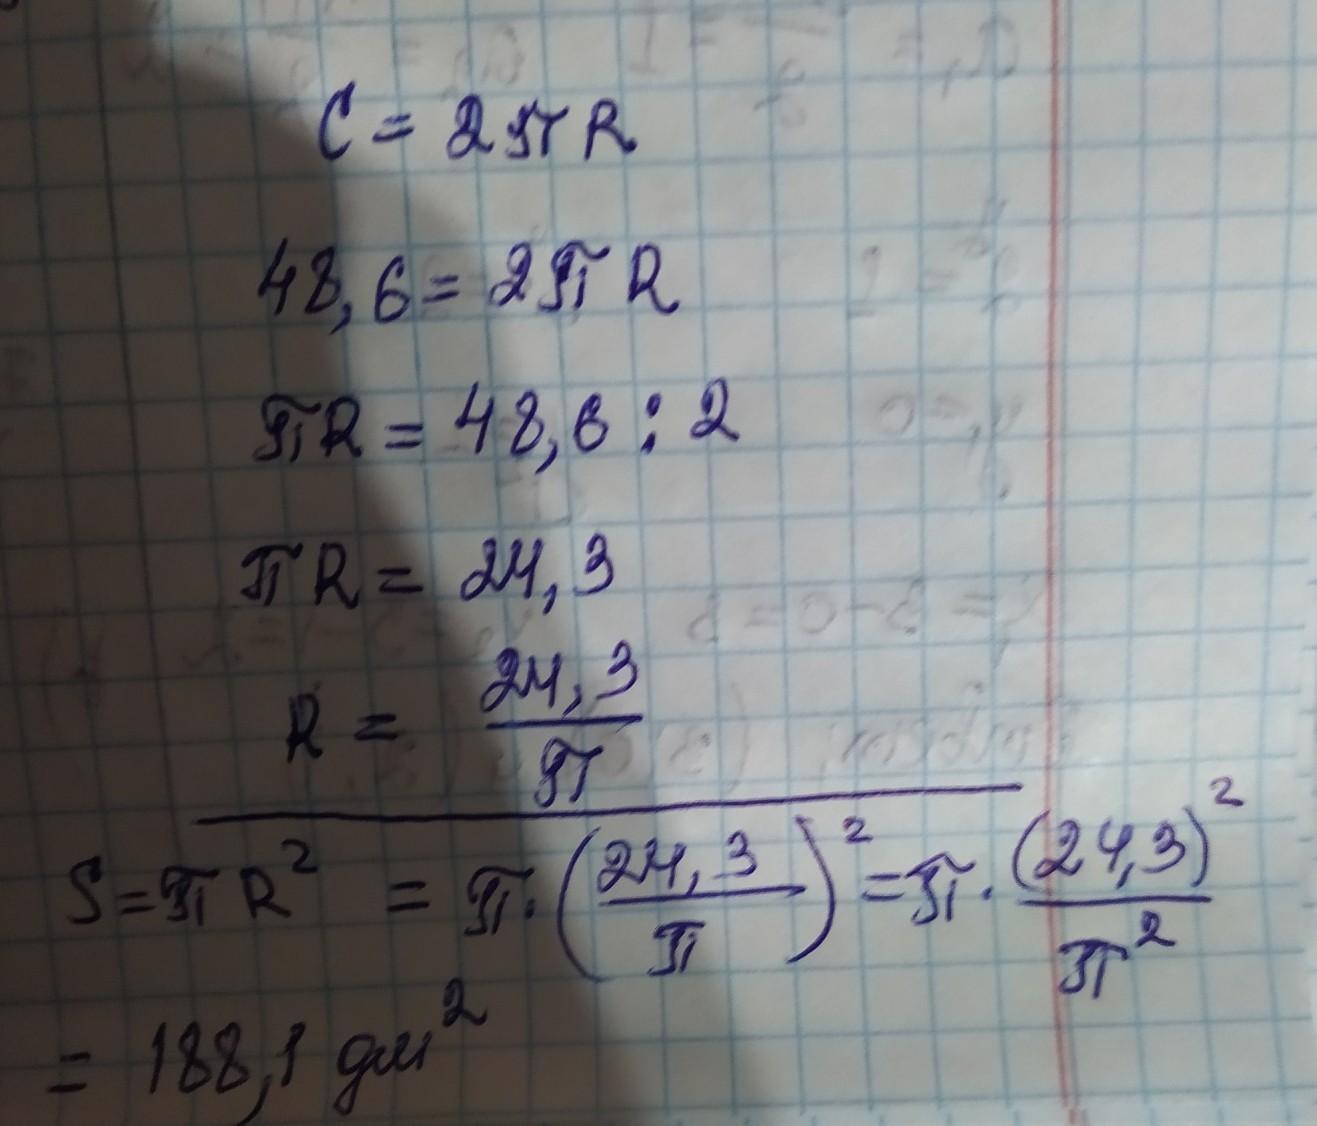 C = 2πR
48,6 = 2πR
πR = 48,6 : 2
πR = 24,3
R = 24,3/π
S = πR² = π · (24,3/π)² = π · (24,3)²/π²
= 188,1 дм²